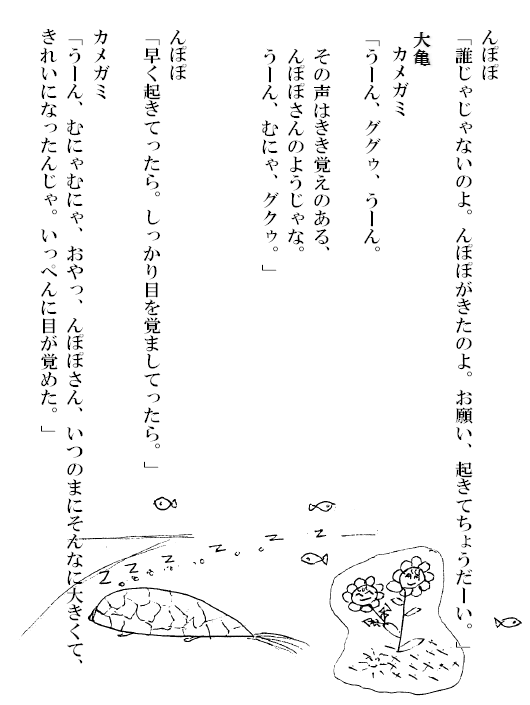 んぽぽ
「誰じゃじゃないのよ。んぽぽがきたのよ。お願い、起きてちょうだーい。」
大亀
カメガミ
「うーん、ググゥ、うーん。
その声はきき覚えのある、
んぽぽさんのようじゃな。
うーん、むにゃ、グクゥ。」
んぽぽ
「早く起きてったら。しっかり目を覚ましてったら。」
カメガミ
「うーん、むにゃむにゃ、おやっ、んぽぽさん、いつのまにそんなに大きくて、
きれいになったんじゃ。いっぺんに目が覚めた。」
z z z z z z z z